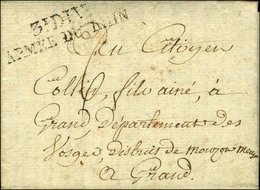 3e DIVon
ARMÉE DU RHIN
Au Citoyen
Collin, fils ainé, à
Grand, Département des
Vosges, District de
à Grand.